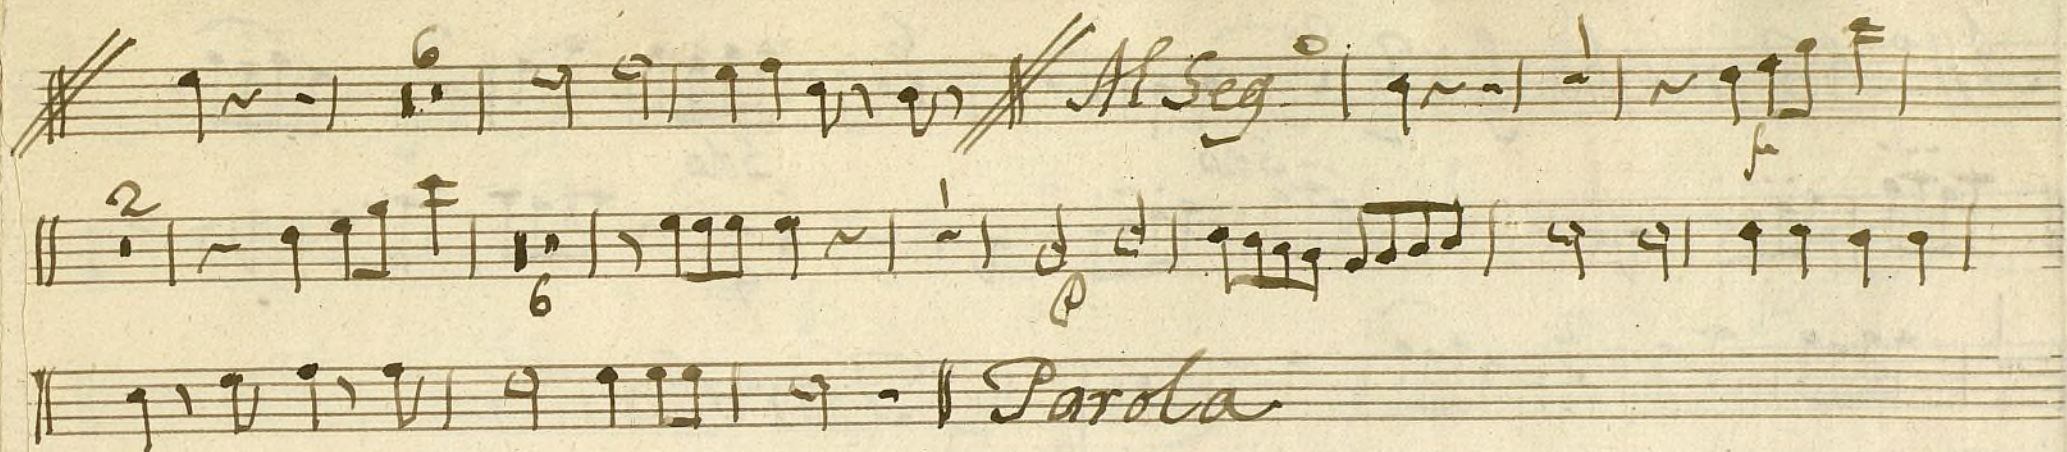 6 Al Segº 1 f
2 6 1 p
Parola